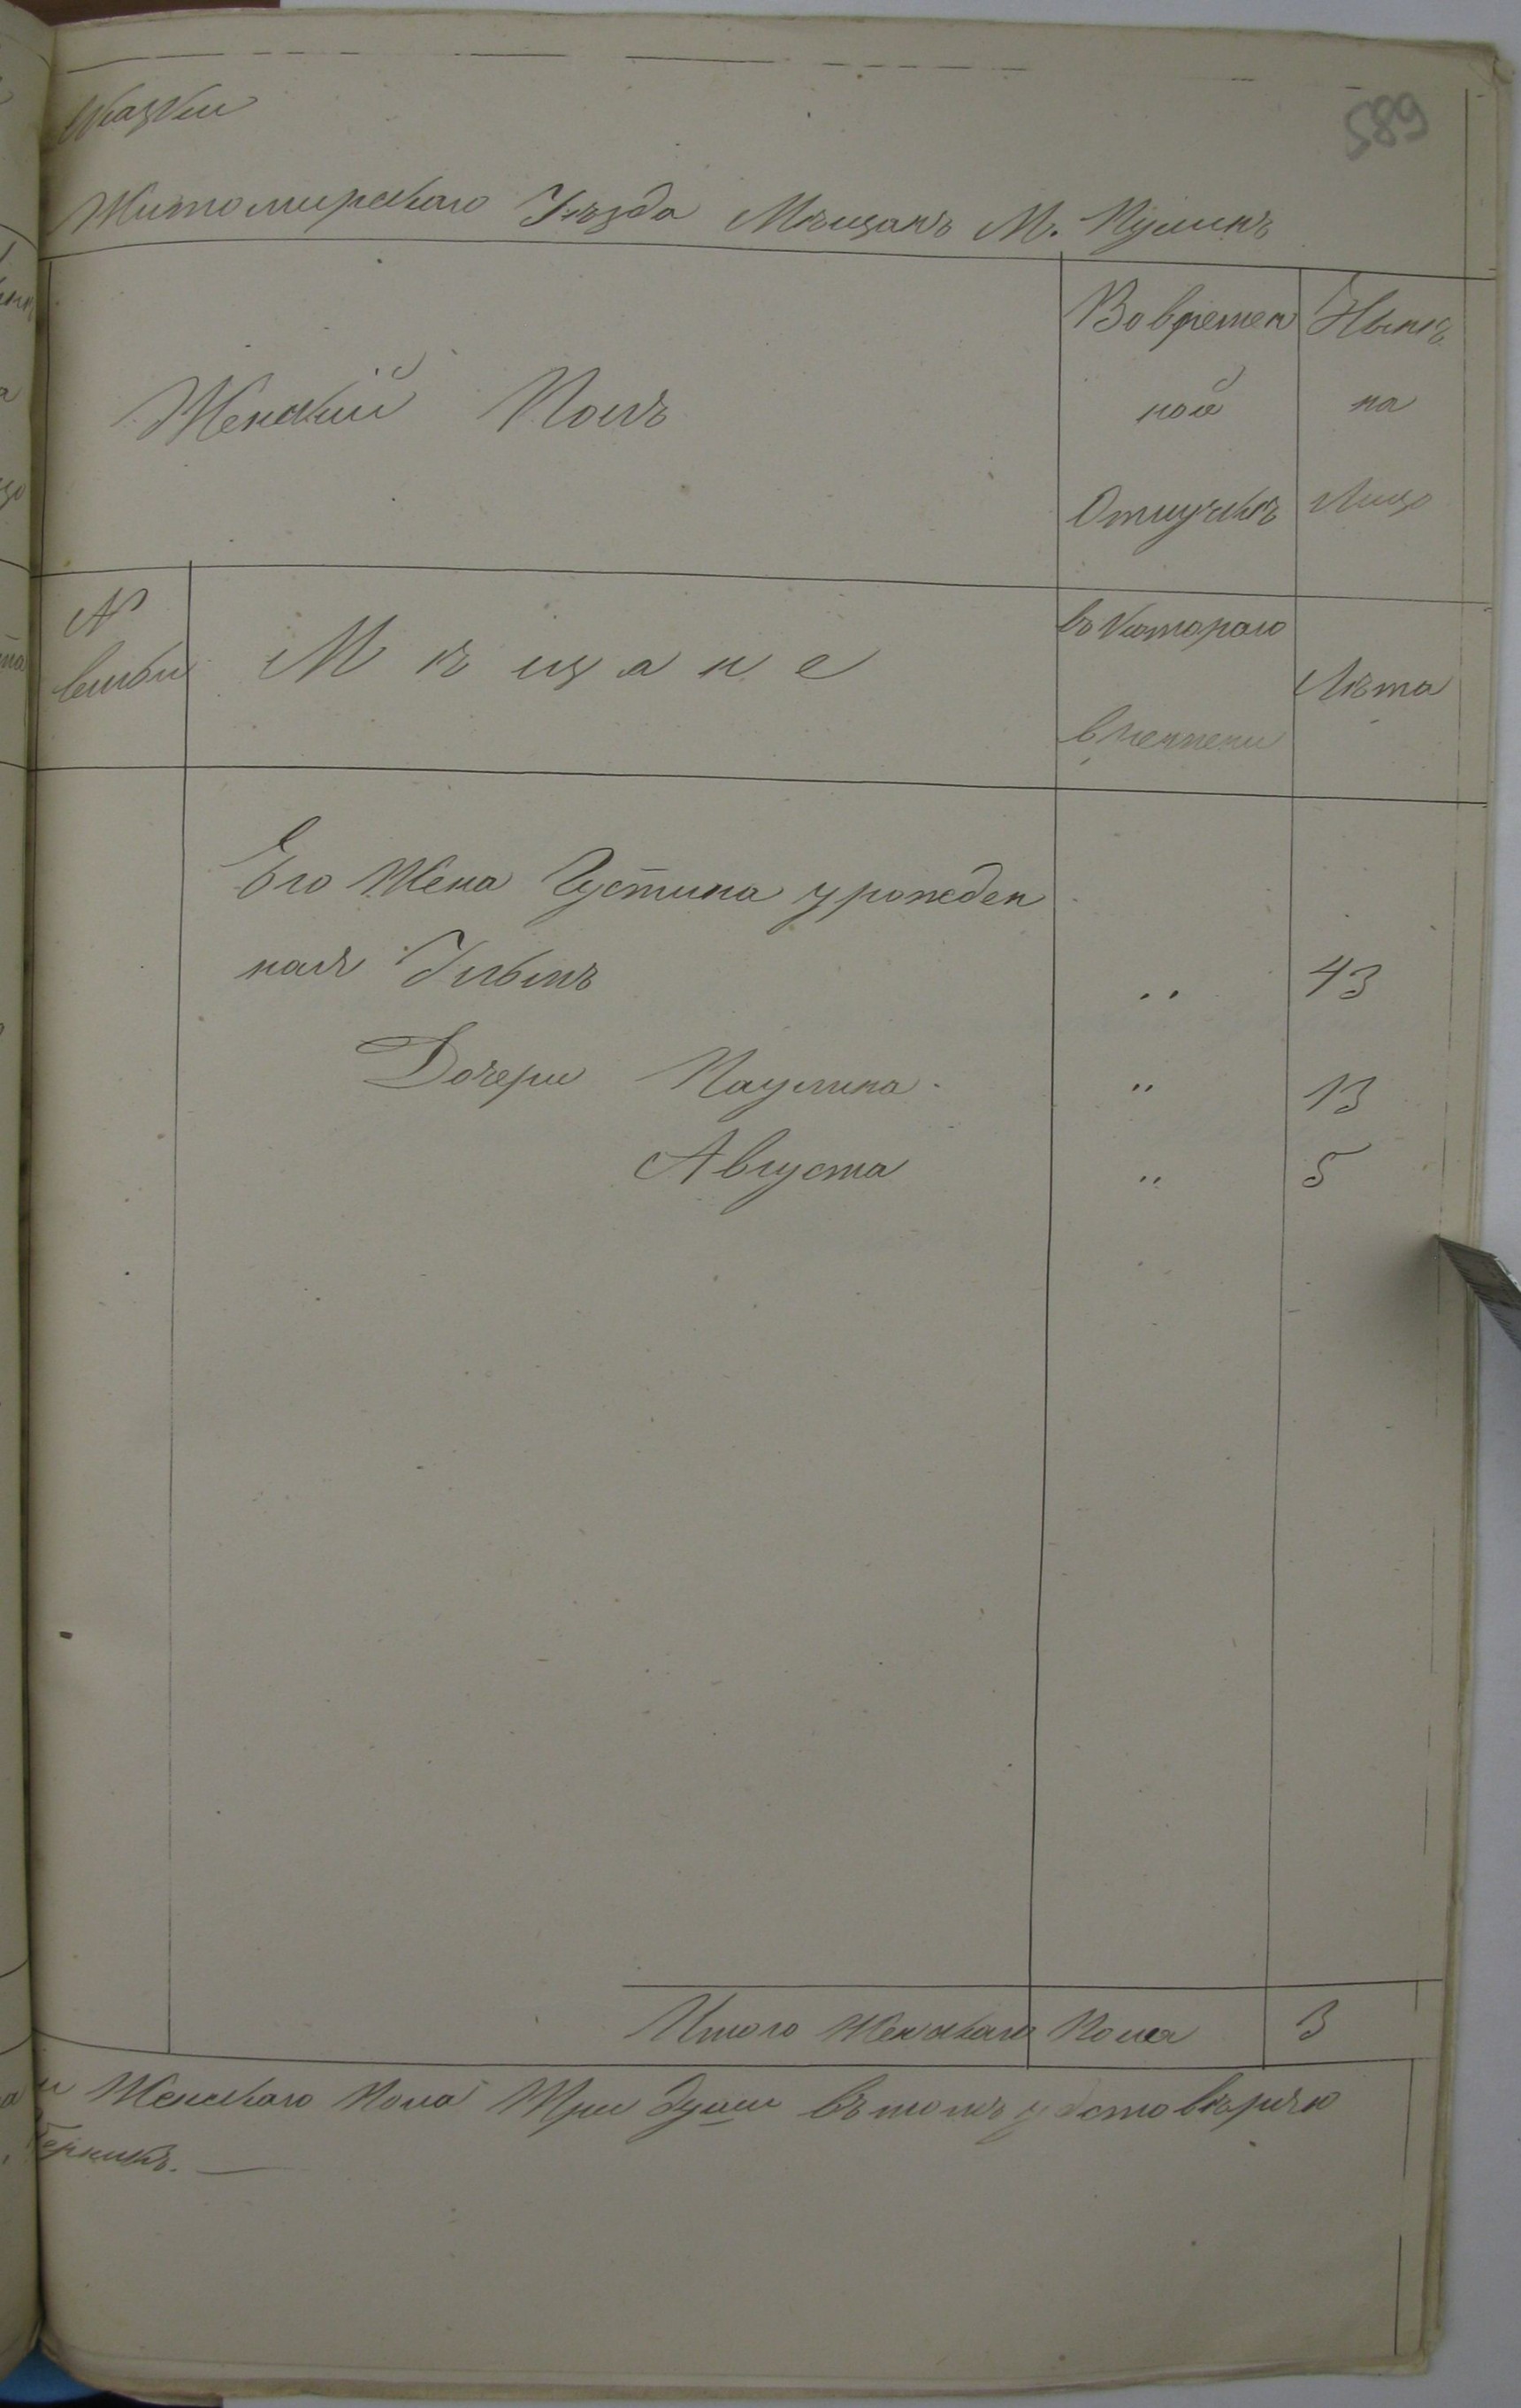 589
Сказки
Житомирскаго Уѣзда Мѣщанъ М. Пулинъ
Женскій Полъ
Во времен
ной
Отлучкѣ
Нынѣ
на
Лицо
№
семьи
Мѣщане
съ котораго
времени
Лѣта
Его Жена Густина урожден
ная
" 43
Дочери Паулина " 13
Августа " 5
Итого Женскаго Пола 3
и Женскаго Пола Три души въ томъ удостовѣряю